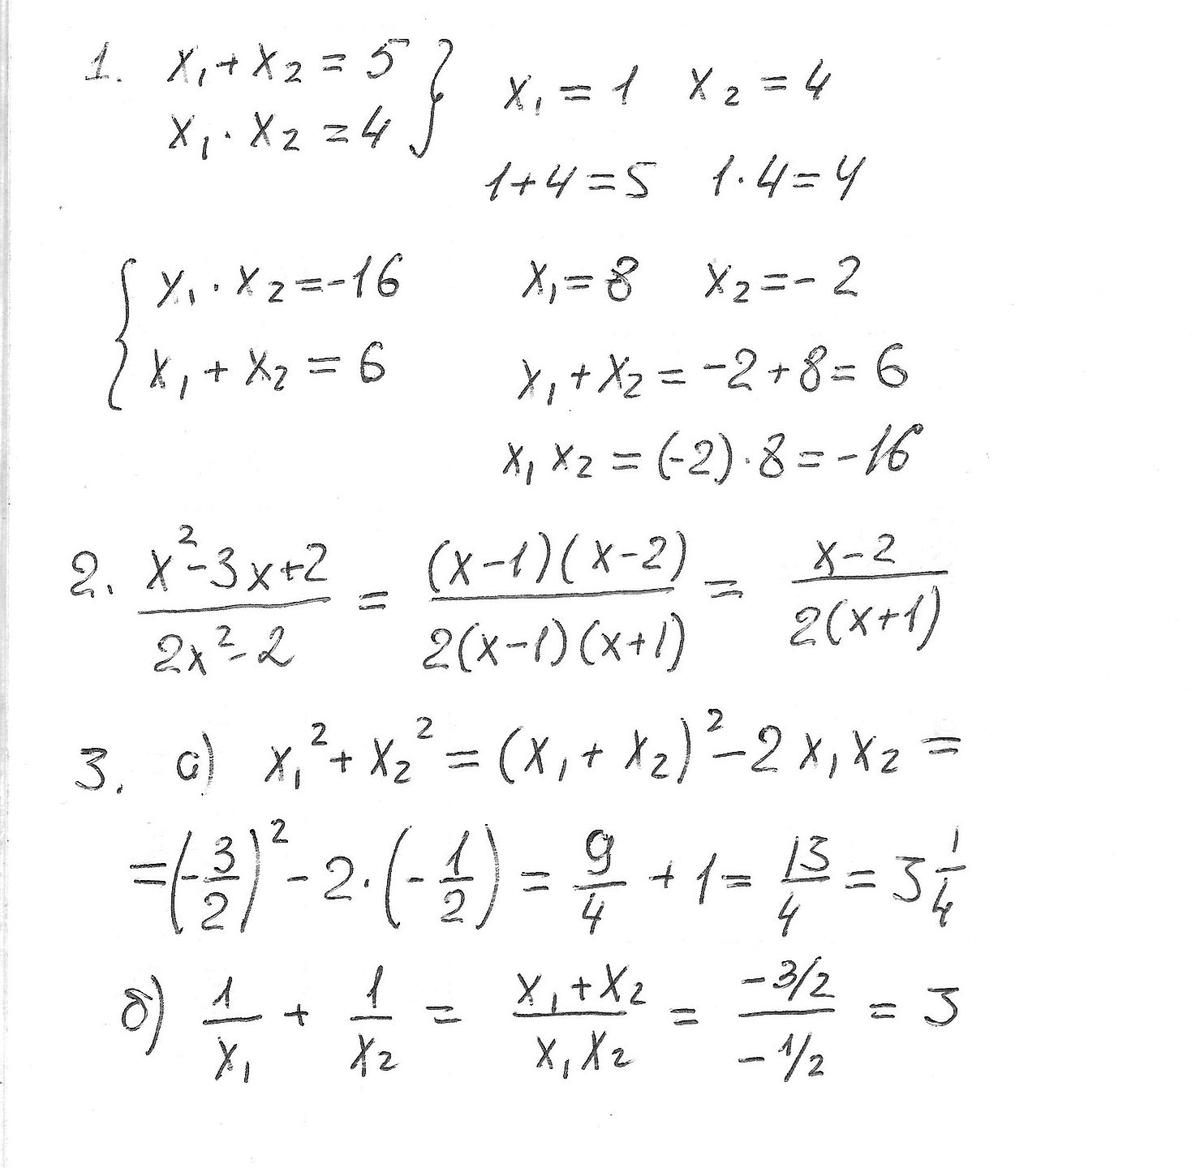 1. x₁ + x₂ = 5 } x₁ = 1 x₂ = 4
x₁ · x₂ = 4
1 + 4 = 5 1 · 4 = 4
{ x₁ · x₂ = -16 x₁ = 8 x₂ = - 2
x₁ + x₂ = 6 x₁ + x₂ = -2 + 8 = 6
x₁ x₂ = (-2) · 8 = -16
2. (x² - 3x + 2)/(2x² - 2) = ((x - 1)(x - 2))/(2(x - 1)(x + 1)) = (x - 2)/(2(x + 1))
3. а) x₁² + x₂² = (x₁ + x₂)² - 2 x₁ x₂ =
= (-3/2)² - 2 · (-1/2) = 9/4 + 1 = 13/4 = 3 1/4
б) 1/x₁ + 1/x₂ = (x₁ + x₂)/(x₁ x₂) = (-3/2)/(-1/2) = 3